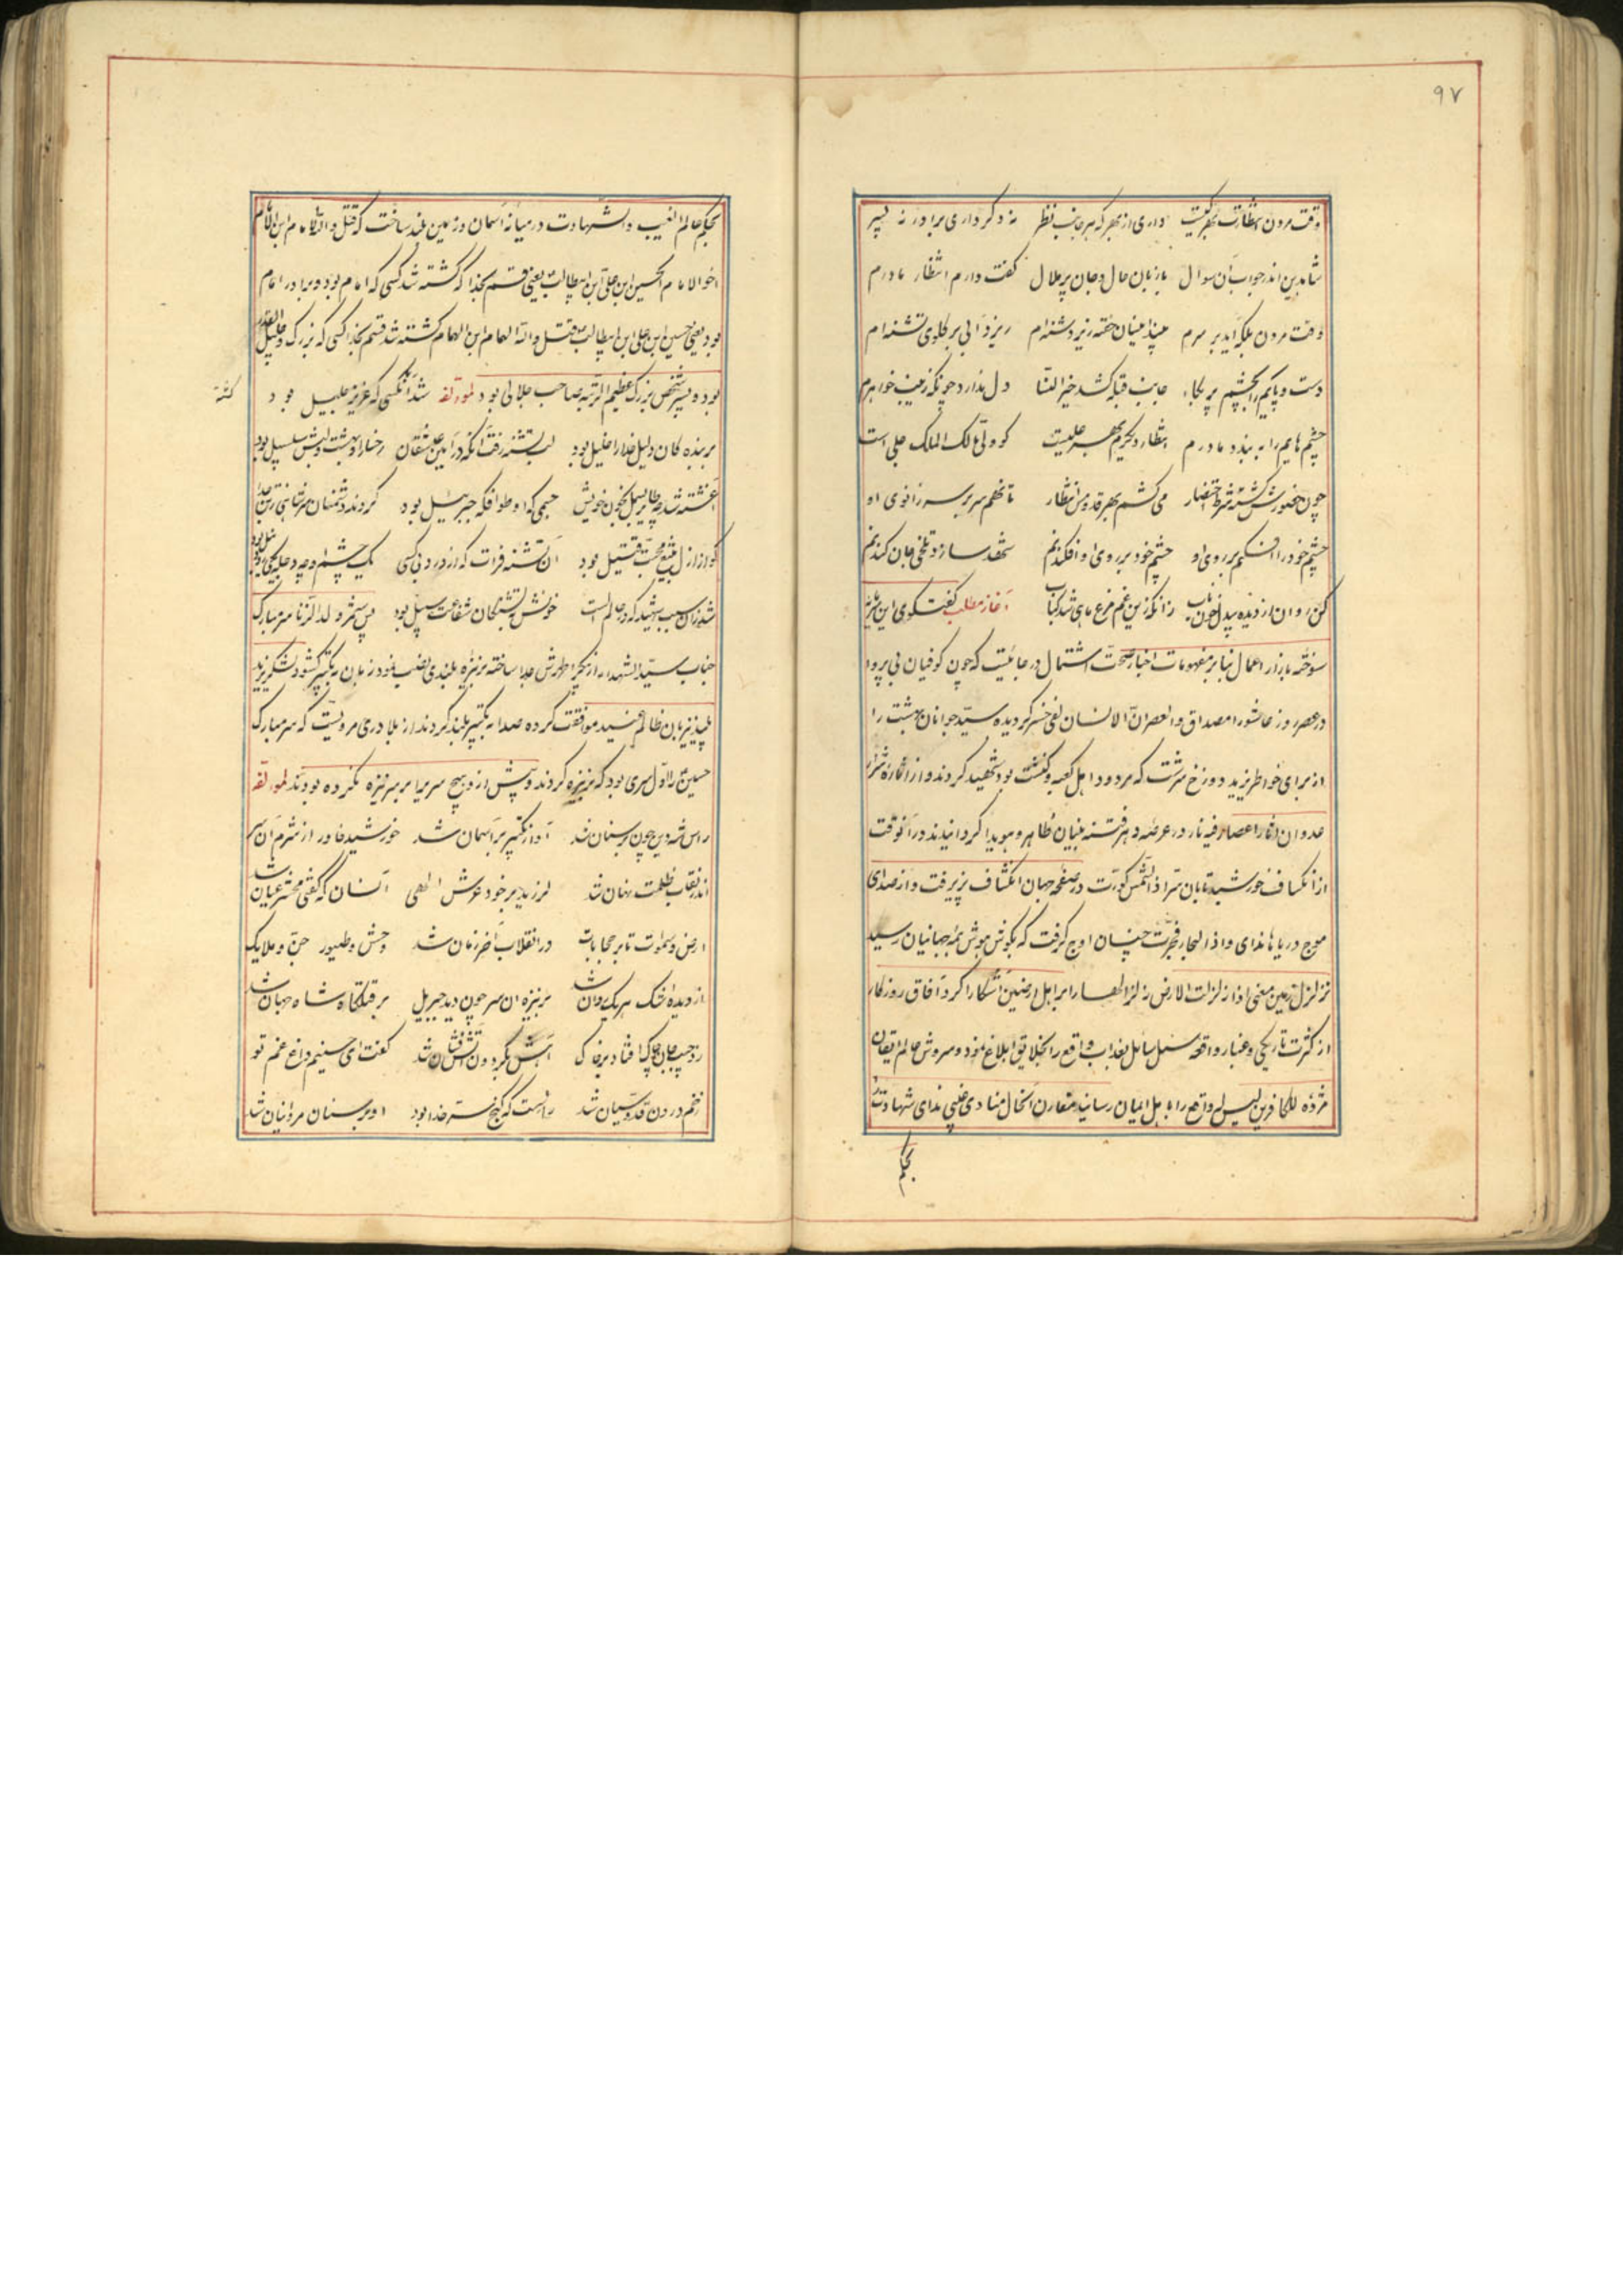 ۹۷
وقت مردن انتظارت بهر کیست داری از بهر که هر جانب نظر نه دگر داری برادر نه پسر
شاه دین اندر جواب آن سوال با زبان حال و جان پر ملال گفت دارم انتظار مادرم
وقت مردن بلکه آید بر سرم بیند اینسان خفته زیر دشنه‌ام ریزد آبی بر گلوی تشنه‌ام
دست و پایم را بچشم پر بکاء جانب قبله کشد خیر النسا دل ندارد چونکه زینب خواهرم
چشم هایم را به بندد مادرم انتظار دیگرم بهر علیست کو ولی مالک الملک جلی است
چون حضورش گشته شرط احتضار می کشم بهر قدومش انتظار تا نهم سر بر سر زانوی او
چشم خود را افکنم بر روی او چشم خود بر روی او افکندنم شهد سازد تلخی جان کندنم
کن روان از دیده بیدل خون ناب زانکه زین غم مرغ و ماهی شد کباب آغاز مطلب گفتگوی این
سوخته بازار اعمال بنا بر مفهومات اخبار صحت اشتمال در جائیست که چون کوفیان بی پروا
در عصر روز عاشورا مصداق والعصر ان الانسان لفی خسر گردیده سید جوانان بهشت را
از برای خواطر یزید دوزخ سرشت که مردود اهل کعبه و کنشت بود شهید کردند و از اثاره شراره
عدوان آثار اعصار فیه نار در عرصه دهر فتنه بنیان ظاهر و هویدا گردانیدند در آنوقت
از انکساف خورشید تابان سر اذا الشمس کورت در صفحه جهان انکشاف پزیرفت و از صدای
موج دریاها ندای و اذا البحار فجرت چنان اوج گرفت که بگوش هوش همه جهانیان رسید
تزلزل زمین معنی اذا زلزلت الارض زلزالها را بر اهل ارضین آشکارا کرد آفاق روزگار
از کثرت تاریکی و غبار واقعه سئل سائل بعذاب واقع را بخلایق ابلاغ نمود و سروش عالم ایقان
مژده للکافرین لیس له دافع را به اهل ایمان رسانید مقارن آنحال منادی غیبی ندای شهادت
بحکم
بحکم عالم الغیب والشهادت در میانه آسمان و زمین بلند ساخت که قتل والله الامام ابن الامام
اخو الامام الحسین ابن علی ابن ابیطالب یعنی قسم بخدا که کشته شد کسی که امام بود و برادر امام
بود یعنی حسین ابن علی ابن ابیطالب قتل والله الهمام ابن الهمام کشته شد قسم بخدا کسی که بزرگ و جلیل القدر
بود و پسر شخص بزرگ عظیم المرتبه صاحب جلالی بود لمؤلفه شد آنکسی که عزیز جلیل بود
کشته
بر بنده کان دلیل خدا را خلیل بود لب تشنه رفت آنکه در آئین عشقان رخسار او بهشت و لبش سلسبیل بود
آغشته شد چو طایر بسمل بخون خویش جسمی که او طوافگه جبرئیل بود کردند دشمنان سر شاهی ز تن جدا
کو از ازل بتیغ محبت قتیل بود آن تشنه فرات که از درد بی کسی یک چشم او چو دجله یکی
شد زان سبب شهید که در عالم الست خونش به تشنگان شفاعت سبیل بود پس شمر ولد الزنا سر مبارک
جناب سید الشهداء از پیکر اطهرش جدا ساخته بر نیزه بلندی نصب نمود زبان به تکبیر گشود لشکر یزید
پلید نیز بان ظالم عنید موافقت کرده صدا به تکبیر بلند کردند از بلادری مرویست که سر مبارک
حسین ع را اول سری بود که بر نیزه کردند و پیش از و هیچ سر برا بر سر نیزه نکرده بودند لمؤلفه
راس شه دین چون بر سنان شد آواز تکبیر بر آسمان شد خورشید خاور از شرم آن سر
اندر نقاب ظلمت نهان شد لرزید بر خود عرش الهی آنسان که گفتی محشر عیان شد
ارض و سموات تا بر حجابات در انقلاب آخر زمان شد وحش و طیور جن و ملایک
از دیده اشک هر یک روان شد بر نیزه آن سر چون دید جبریل بر قتلگاه شاه جهان شد
زد جیب جان چاک افتاد بر خاک آهش بگردون آتش فشان شد گفت ای سینم داغ غم تو
زخم درون قدوسیان شد راسیست که گنج سر خدا بود او بر سنان مروانیان شد